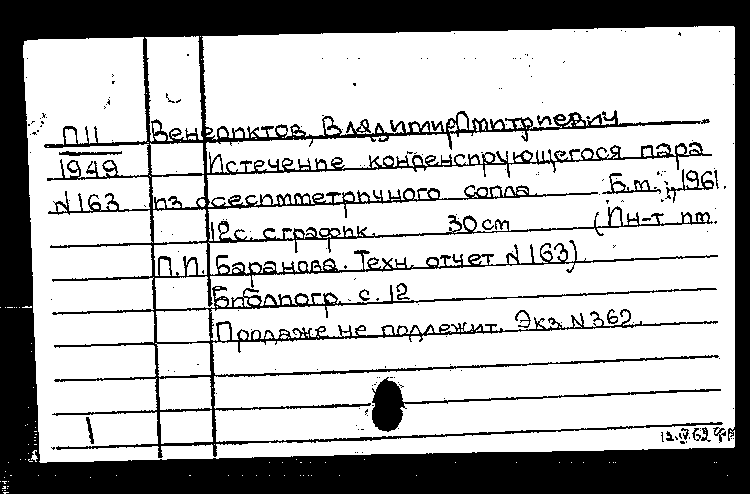 П11 Венедиктов, Владимир Дмитриевич
1949 Истечение конденсирующегося пара
N163 из осесимметричного сопла Б.м., 1961.
12с. с график. 30 см (Ин-т им.
П.И. Баранова. Техн. отчет N 163)
Библиогр. с. 12
Продаже не подлежит. Экз. N 362.
12.IV.62